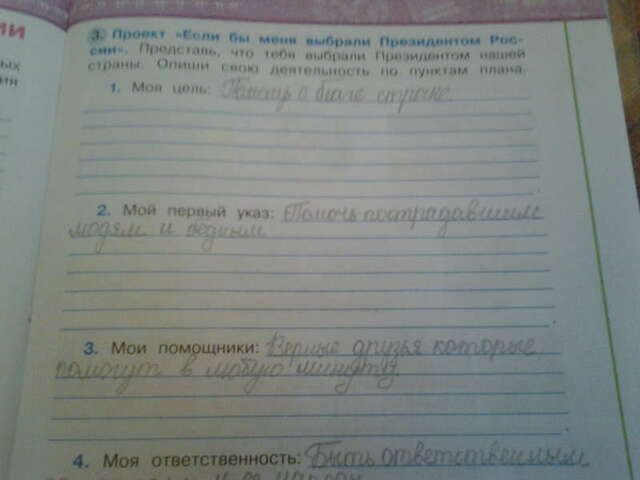 ИИ
ых
ия
3. Проект «Если бы меня выбрали Президентом Рос-
сии». Представь, что тебя выбрали Президентом нашей
страны. Опиши свою деятельность по пунктам плана.
1. Моя цель: о благе
2. Мой первый указ: Помочь пострадавшим
людям и бедным
3. Мои помощники: Верные друзья которые
помогут в любую минуту
4. Моя ответственность: Быть ответственным